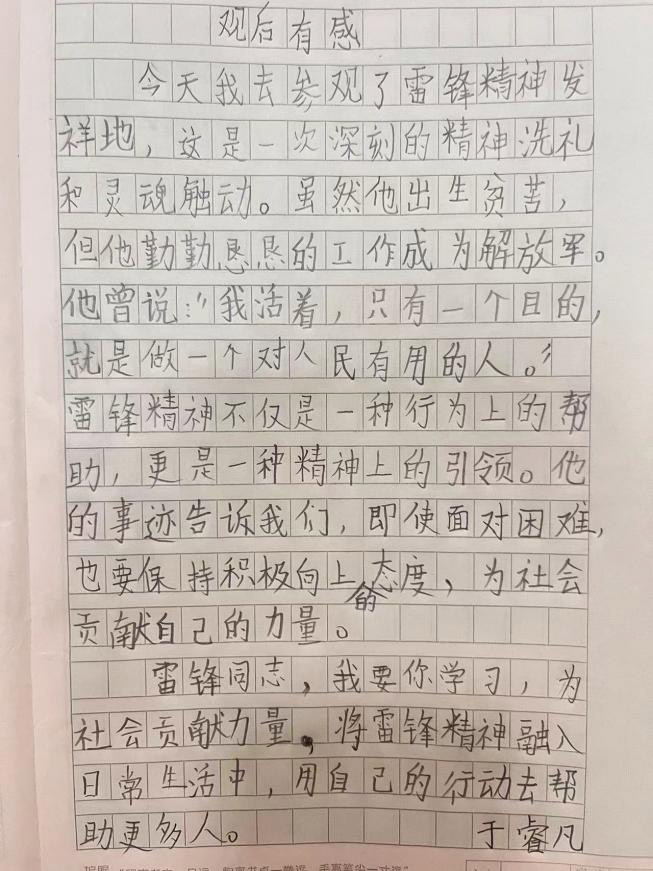 观后有感
今天我去参观了雷锋精神发
祥地，这是一次深刻的精神洗礼
和灵魂触动。虽然他出生贫苦，
但他勤勤恳恳的工作成为解放军。
他曾说：“我活着，只有一个目的，
就是做一个对人民有用的人。”
雷锋精神不仅是一种行为上的帮
助，更是一种精神上的引领。他
的事迹告诉我们，即使面对困难，
也要保持积极向上的态度，为社会
贡献自己的力量。
雷锋同志，我要你学习，为
社会贡献力量，将雷锋精神融入
日常生活中，用自己的行动去帮
助更多人。 于睿凡